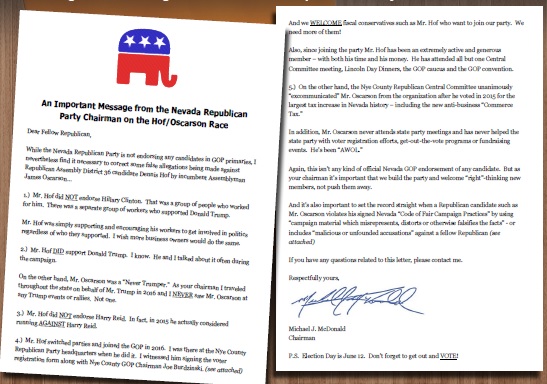 An Important Message from the Nevada Republican
Party Chairman on the Hof/Oscarson Race
Dear Fellow Republican,
While the Nevada Republican Party is not endorsing any candidates in GOP primaries, I
nevertheless find it necessary to correct some false allegations being made against
Republican Assembly District 36 candidate Dennis Hof by incumbent Assemblyman
James Oscarson...
1.) Mr. Hof did NOT endorse Hillary Clinton. That was a group of people who worked
for him. There was a separate group of workers who supported Donald Trump.
Mr. Hof was simply supporting and encouraging his workers to get involved in politics
regardless of who they supported. I wish more business owners would do the same.
2.) Mr. Hof DID support Donald Trump. I know. He and I talked about it often during
the campaign.
On the other hand, Mr. Oscarson was a "Never Trumper." As your chairman I traveled
throughout the state on behalf of Mr. Trump in 2016 and I NEVER saw Mr. Oscarson at
any Trump events or rallies. Not one.
3.) Mr. Hof did NOT endorse Harry Reid. In fact, in 2015 he actually considered
running AGAINST Harry Reid.
4.) Mr. Hof switched parties and joined the GOP in 2016. I was there at the Nye County
Republican Party headquarters when he did it. I witnessed him signing the voter
registration form along with Nye County GOP Chairman Joe Burdzinski. (see attached)
And we WELCOME fiscal conservatives such as Mr. Hof who want to join our party. We
need more of them!
Also, since joining the party Mr. Hof has been an extremely active and generous
member – with both his time and his money. He has attended all but one Central
Committee meeting, Lincoln Day Dinners, the GOP caucus and the GOP convention.
5.) On the other hand, the Nye County Republican Central Committee unanimously
"excommunicated" Mr. Oscarson from the organization after he voted in 2015 for the
largest tax increase in Nevada history – including the new anti-business "Commerce
Tax."
In addition, Mr. Oscarson never attends state party meetings and has never helped the
state party with voter registration efforts, get-out-the-vote programs or fundraising
events. He's been "AWOL."
Again, this isn't any kind of official Nevada GOP endorsement of any candidate. But as
your chairman it's important that we build the party and welcome "right"-thinking new
members, not push them away.
And it's also important to set the record straight when a Republican candidate such as
Mr. Oscarson violates his signed Nevada "Code of Fair Campaign Practices" by using
"campaign material which misrepresents, distorts or otherwise falsifies the facts" - or
includes "malicious or unfounded accusations" against a fellow Republican (see
attached)
If you have any questions related to this letter, please contact me.
Respectfully yours,
Michael J. McDonald
Chairman
P.S. Election Day is June 12. Don't forget to get out and VOTE!